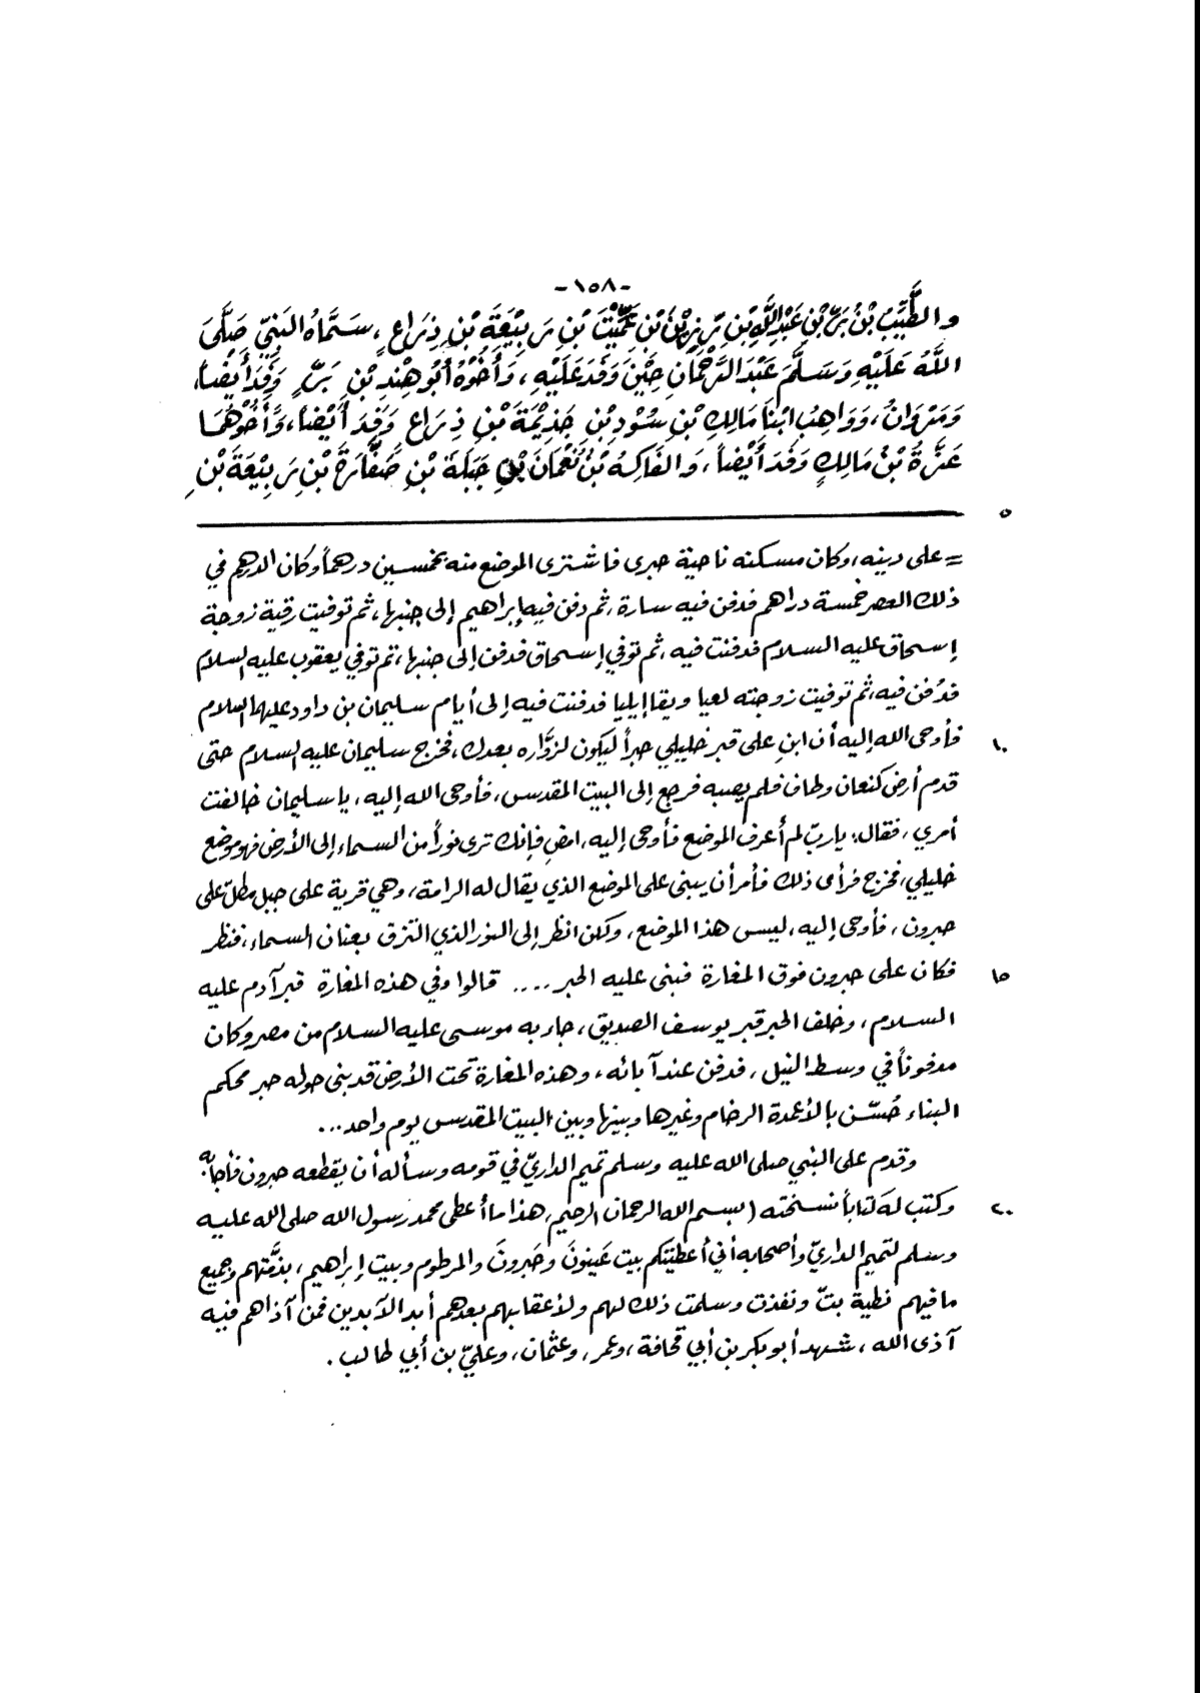 -١٥٨-
والطَّيِّبُ بْنُ بَرِّ بْنِ عَبْدِ اللَّهِ بْنِ رَزِينِ بْنِ عِمِّيْتَ بْنِ رَبِيْعَةَ بْنِ ذِرَاعٍ، سَمَّاهُ النَبِيّ صَلَّى
اللَّهُ عَلَيْهِ وَسَلَّمَ عَبْدَ الرَّحْمَانِ حِيْنَ وَفَدَ عَلَيْهِ، وَأَخُوْهُ أَبُو هِنْدِ بْنِ بَرٍّ وَفَدَ أَيْضاً،
وَمَرْوَانُ، وَوَاهِبُ ابْنَا مَالِكِ بْنِ سُوْدِ بْنِ جَذِيْمَةَ بْنِ ذِرَاعٍ وَفَدَ أَيْضاً، وَأَخُوْهُمَا
عَزَّةُ بْنُ مَالِكٍ وَفَدَ أَيْضاً، وَالفَاكِهُ بْنُ نُعْمَانَ بْنِ جَبَلَةَ بْنِ صَفَّارَةَ بْنِ رَبِيْعَةَ بْنِ
٥
= على دينه، وكان مسكنه ناحية حبرى فاشترى الموضع منه بخمسين درهماً وكان الدرهم في
ذلك العصر خمسة دراهم فدفن فيه سارة، ثم دفن فيه إبراهيم إلى جنبها، ثم توفيت رقية زوجة
إسحاق عليه السلام فدفنت فيه، ثم توفي إسحاق فدفن إلى جنبها، ثم توفي يعقوب عليه السلام
فدُفن فيه، ثم توفيت زوجته لعيا ويقا إيليا فدفنت فيه إلى أيام سليمان بن داود عليهما السلام
فأوحى الله إليه أن ابنِ على قبر خليلي حيراً ليكون لزوَّاره بعدك، فخرج سليمان عليه السلام حتى
١٠
قدم أرض كنعان وطاف فلم يصبه فرجع إلى البيت المقدس، فأوحى الله إليه، يا سليمان خالفت
أمري، فقال: يا ربّ لم أعرف الموضع فأوحى إليه، امضِ فإنك ترى نوراً من السماء إلى الأرض فهو موضع
خليلي، فخرج فرأى ذلك فأمر أن يبنى على الموضع الذي يقال له الرامة، وهي قرية على جبل مطلّ على
حبرون، فأوحى إليه، ليس هذا الموضع، ولكن انظر إلى النور الذي التزق بعنان السماء، فنظر
فكان على حبرون فوق المغارة فبنى عليه الحير .... قالوا وفي هذه المغارة قبر آدم عليه
١٥
السلام، وخلف الحير قبر يوسف الصديق، جاء به موسى عليه السلام من مصر وكان
مدفوناً في وسط النيل، فدفن عند آبائه، وهذه المغارة تحت الأرض قد بني حوله حير محكم
البناء حُسّن بالأعمدة الرخام وغيرها وبينها وبين البيت المقدس يوم واحد...
وقدم على النبي صلى الله عليه وسلم تميم الداريّ في قومه وسأله أن يقطعه حبرون فأجابه
وكتب له كتاباً نسخته (بسم الله الرحمان الرحيم، هذا ما أعطى محمد رسول الله صلى الله عليه
٢٠
وسلم لتميم الداريّ وأصحابه أني أعطيتكم بيت عَينونَ وحَبرونَ والمرطوم وبيت إبراهيم، بذمَّتهم وجميع
ما فيهم نطية بتّ ونفذت وسلمت ذلك لهم ولأعقابهم بعدهم أبد الآبدين فمن آذاهم فيه
آذى الله، شهد أبو بكر بن أبي قحافة، وعمر، وعثمان، وعليّ بن أبي طالب.